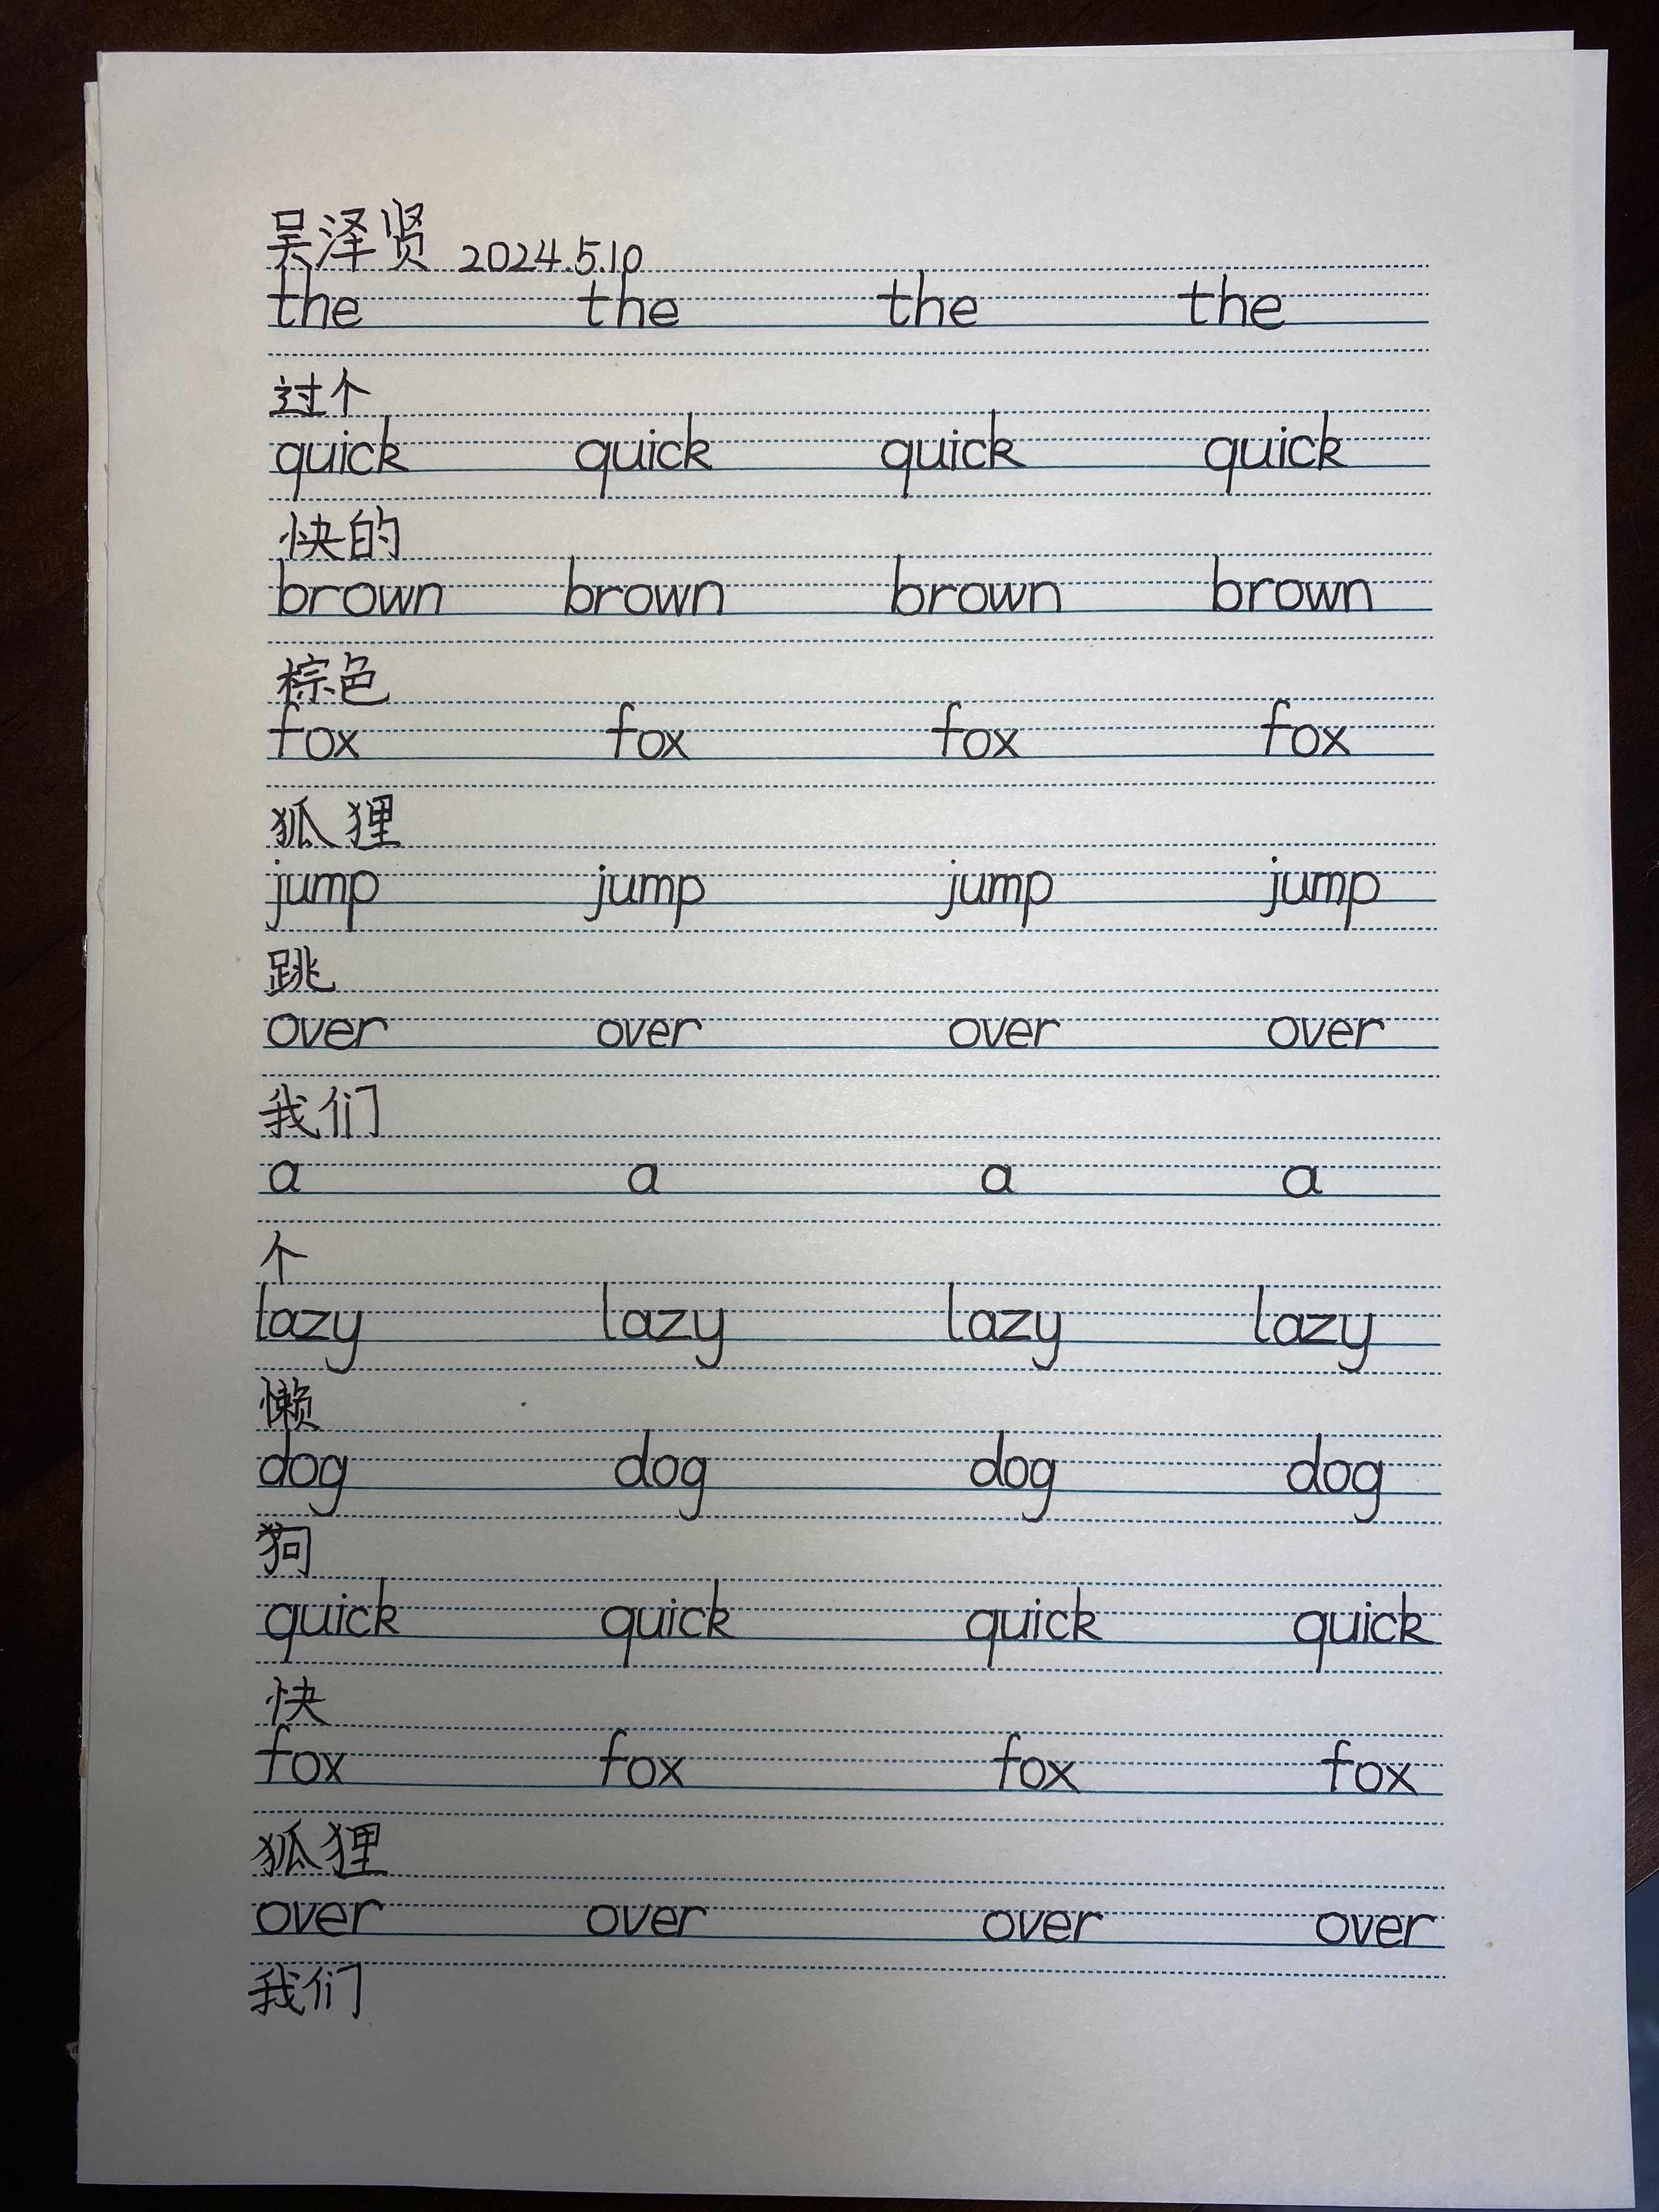 吴泽贤 2024.5.10
the the the the
过个
quick quick quick quick
快的
brown brown brown brown
棕色
fox fox fox fox
狐狸
jump jump jump jump
跳
over over over over
我们
a a a a
个
lazy lazy lazy lazy
懒
dog dog dog dog
狗
quick quick quick quick
快
fox fox fox fox
狐狸
over over over over
我们